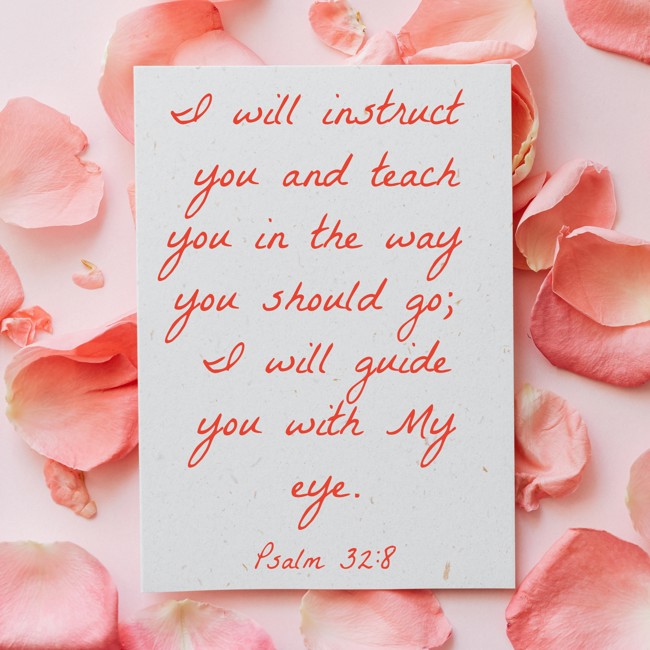 I will instruct
you and teach
you in the way
you should go;
I will guide
you with My
eye.
Psalm 32:8